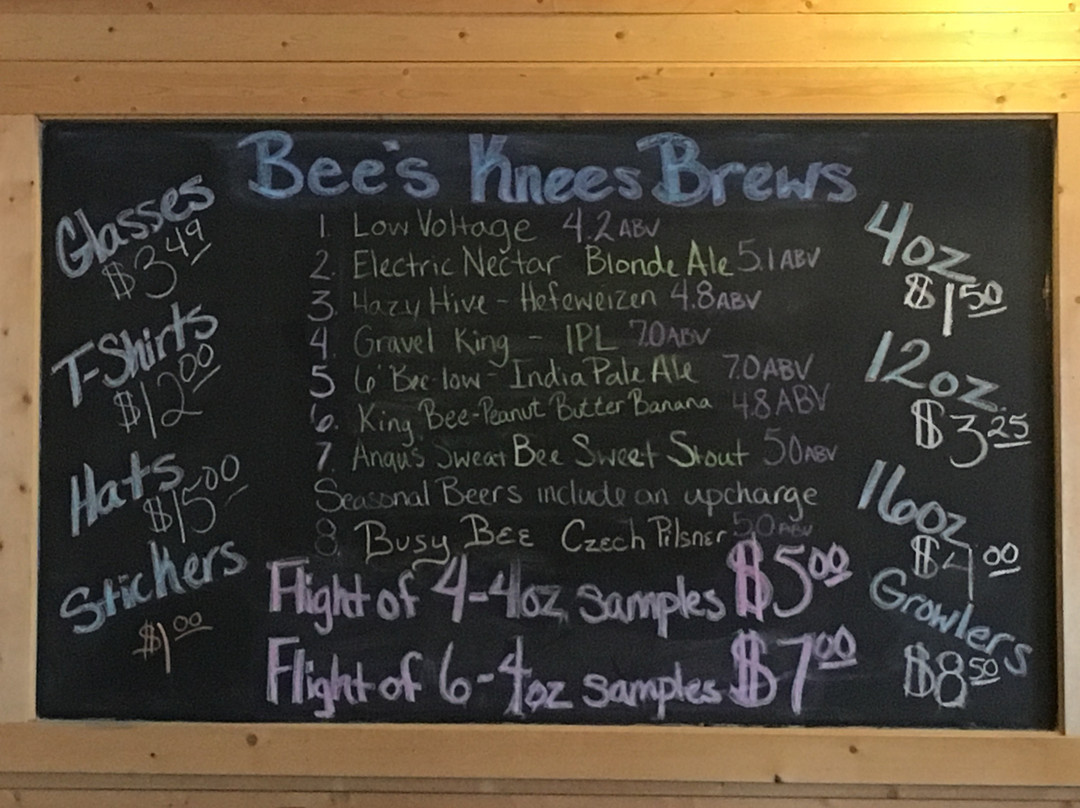 Bee's Knees Brews
Glasses
$3.49
T-Shirts
$12.00
Hats
$15.00
Stickers
$1.00
1. Low Voltage 4.2 ABV
2. Electric Nectar Blonde Ale 5.1 ABV
3. Hazy Hive - Hefeweizen 4.8 ABV
4. Gravel King - IPL 7.0 ABV
5 6' Bee-low - India Pale Ale 7.0 ABV
6. King Bee-Peanut Butter Banana 4.8 ABV
7. Angus Sweat Bee Sweet Stout 5.0 ABV
Seasonal Beers include an upcharge
8. Busy Bee Czech Pilsner 5.0 ABV
Flight of 4-4oz samples $5.00
Flight of 6-4oz samples $7.00
4oz
$1.50
12oz.
$3.25
16oz
$4.00
Growlers
$8.50